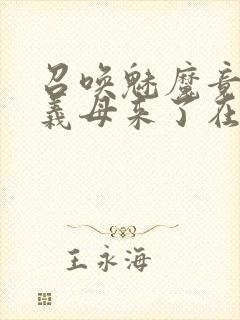 召唤魅魔竟
义母来了在
王永海